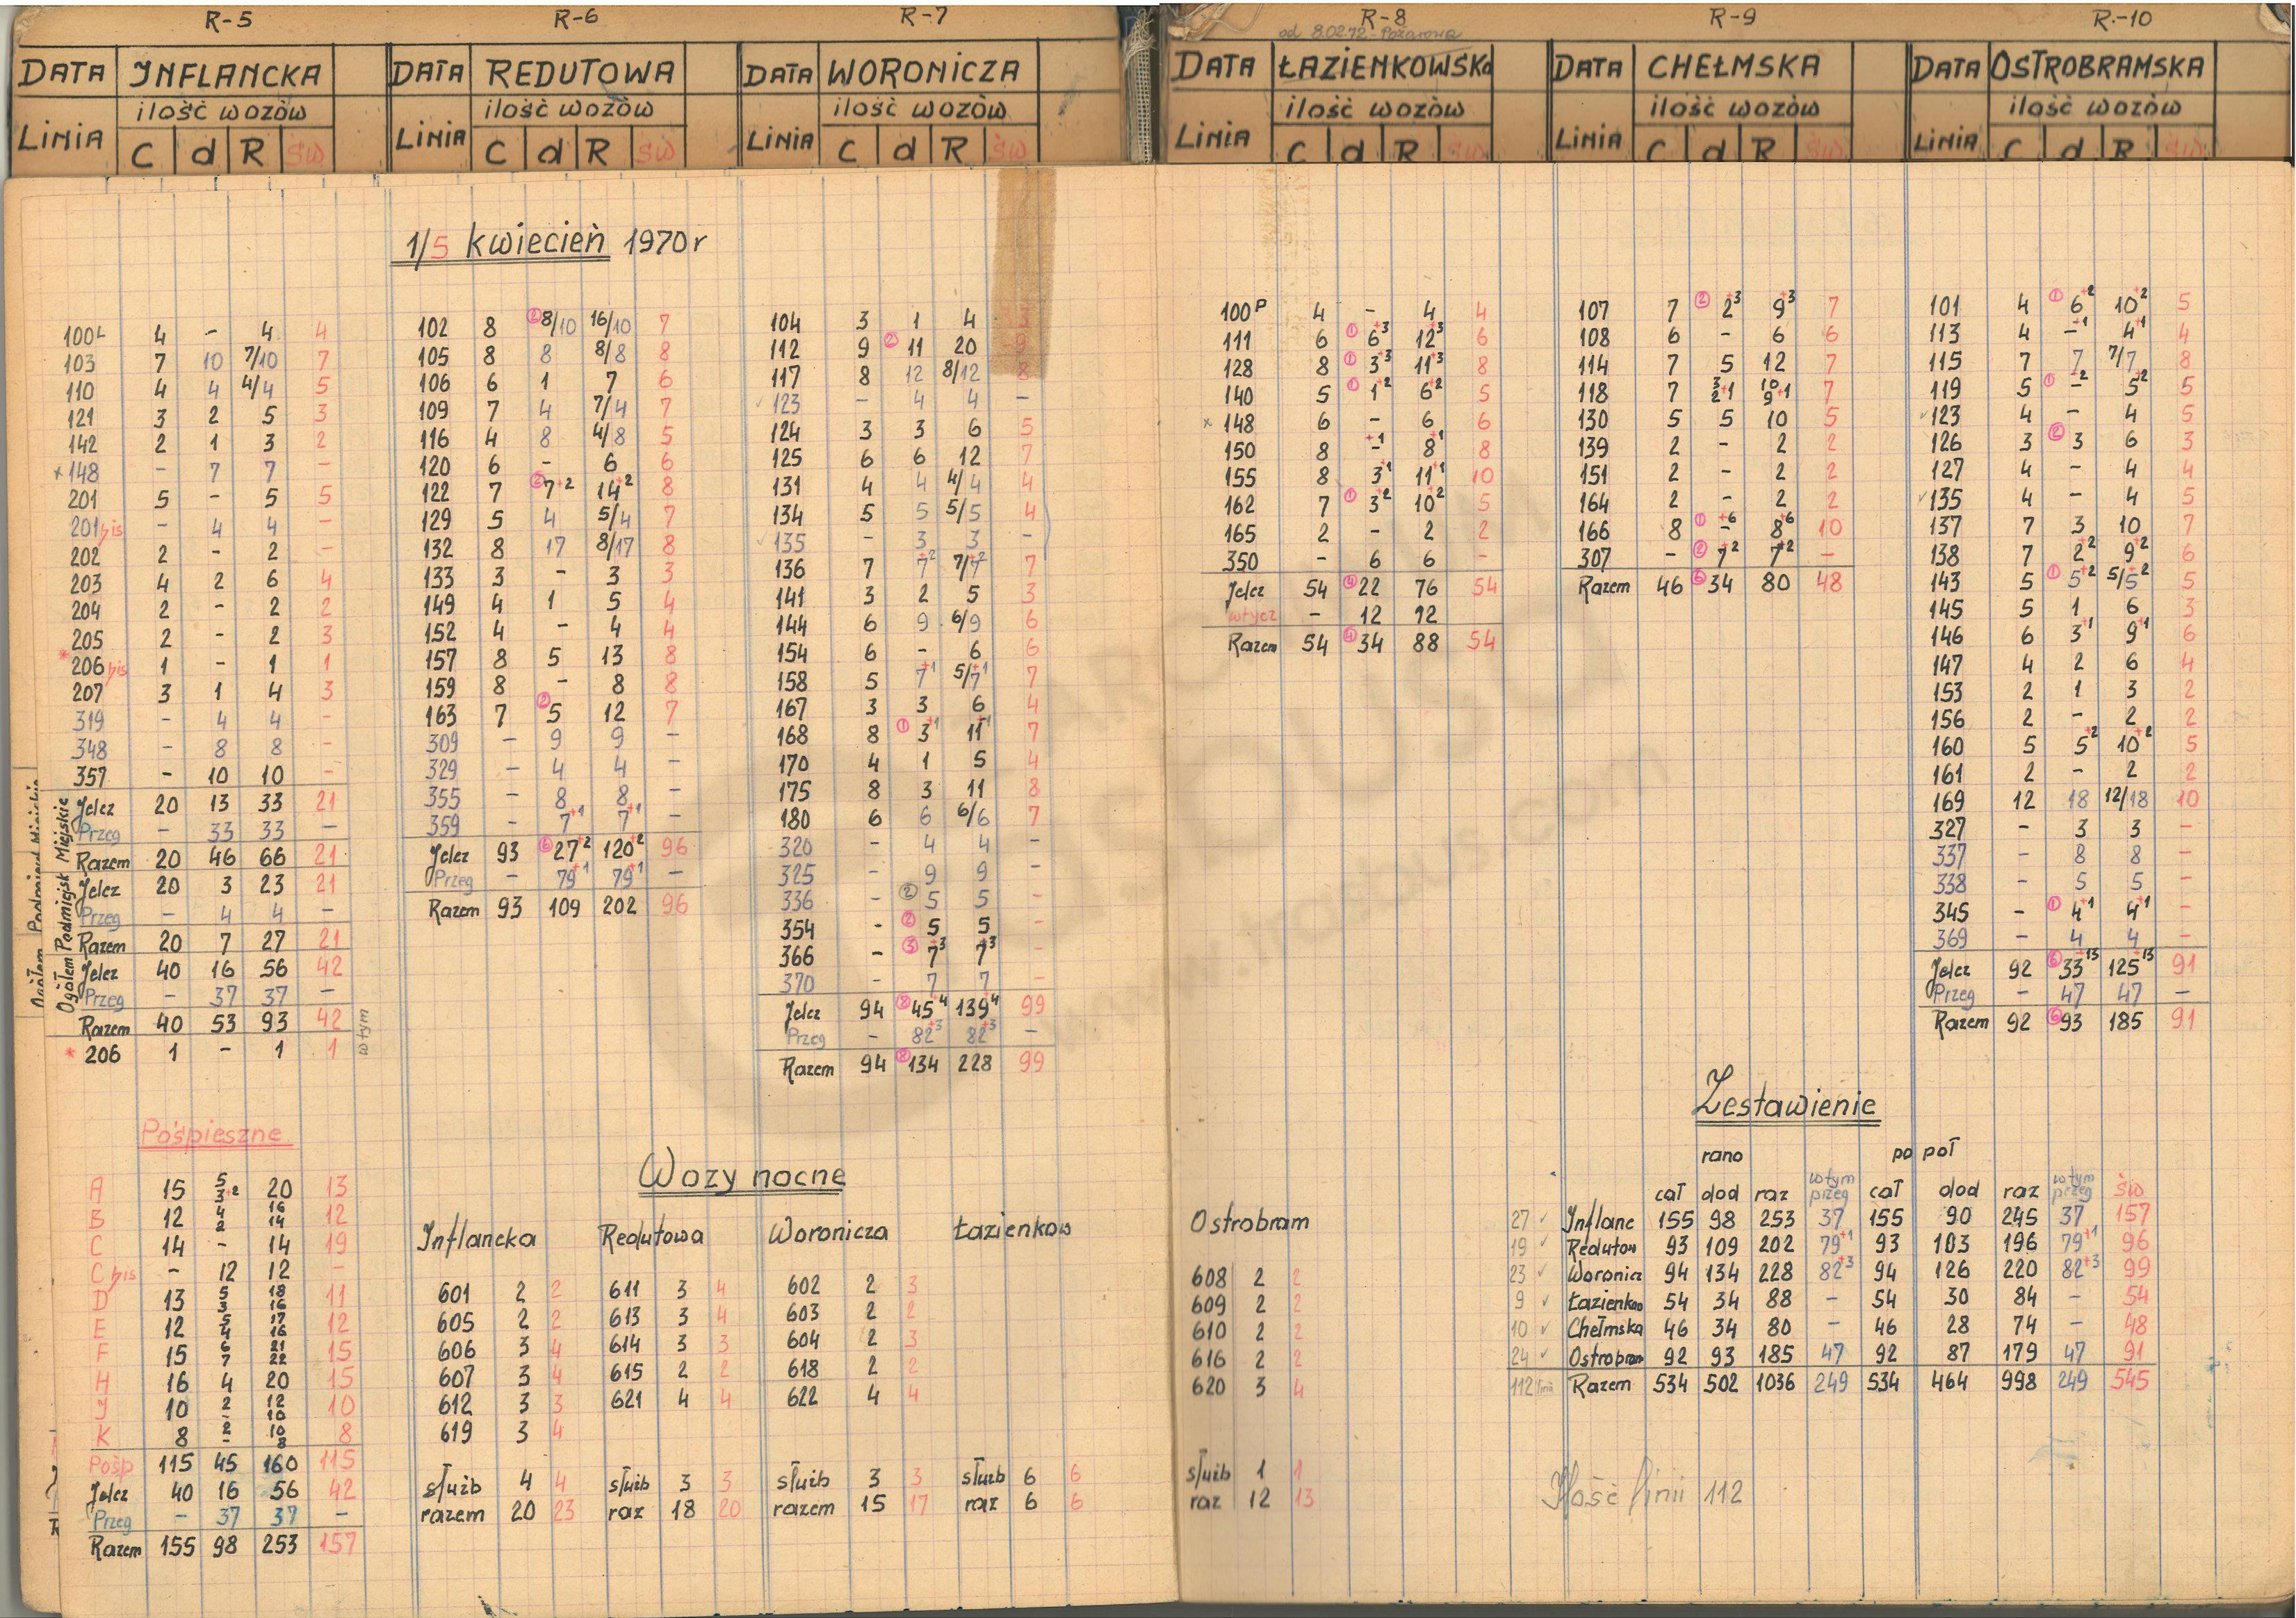 R-5 R-6 R-7 R-8 R-9 R-10
od 8.02.72 - Pożarowa
DATA INFLANCKA DATA REDUTOWA DATA WORONICZA DATA ŁAZIENKOWSKa DATA CHEŁMSKA DATA OSTROBRAMSKA
ilość wozów ilość wozów ilość wozów ilość wozów ilość wozów ilość wozów
LINIA C d R św LINIA C d R św LINIA C d R św LINIA C d R św LINIA C d R św LINIA C d R św
1/5 kwiecień 1970r
100L 4 - 4 4
103 7 10 7/10 7
110 4 4 4/4 5
121 3 2 5 3
142 2 1 3 2
x 148 - 7 7 -
201 5 - 5 5
201bis - 4 4 -
202 2 - 2 -
203 4 2 6 4
204 2 - 2 2
205 2 - 2 3
* 206bis 1 - 1 1
207 3 1 4 3
319 - 4 4 -
348 - 8 8 -
357 - 10 10 -
Miejskie
Jelcz 20 13 33 21
Przeg - 33 33 -
Razem 20 46 66 21
Podmiejsk
Jelcz 20 3 23 21
Przeg - 4 4 -
Razem 20 7 27 21
Ogółem
Jelcz 40 16 56 42
Przeg - 37 37 -
Razem 40 53 93 42
* 206 1 - 1 1 w tym
102 8 (2) 8/10 16/10 7
105 8 8 8/8 8
106 6 1 7 6
109 7 4 7/4 7
116 4 8 4/8 5
120 6 - 6 6
122 7 (2) 7+2 14+2 8
129 5 4 5/4 7
132 8 17 8/17 8
133 3 - 3 3
149 4 1 5 4
152 4 - 4 4
157 8 5 13 8
159 8 - 8 8
163 7 (2) 5 12 7
309 - 9 9 -
329 - 4 4 -
355 - 8 8 -
359 - 7+1 7+1 -
Jelcz 93 (6) 27+2 120+2 96
Przeg - 79+1 79+1 -
Razem 93 109 202 96
104 3 1 4
112 9 (2) 11 20
117 8 12 8/12 8
✓ 123 - 4 4 -
124 3 3 6 5
125 6 6 12 7
131 4 4 4/4 4
134 5 5 5/5 4
✓ 135 - 3 3 -
136 7 7+2 7/7+2 7
141 3 2 5 3
144 6 9 6/9 6
154 6 - 6 6
158 5 7+1 5/7+1 7
167 3 3 6 4
168 8 (1) 3+1 11+1 7
170 4 1 5 4
175 8 3 11 8
180 6 6 6/6 7
320 - 4 4 -
325 - 9 9 -
336 - (2) 5 5 -
354 - (2) 5 5 -
366 - (3) 7+3 7+3 -
370 - 7 7 -
Jelcz 94 (8) 45+4 139+4 99
Przeg - 82+3 82+3 -
Razem 94 (8) 134 228 99
100P 4 - 4 4
111 6 (1) 6+3 12+3 6
128 8 (1) 3+3 11+3 8
140 5 (1) 1+2 6+2 5
x 148 6 - 6 6
150 8 -+1 8+1 8
155 8 3+1 11+1 10
162 7 (1) 3+2 10+2 5
165 2 - 2 2
350 - 6 6 -
Jelcz 54 (4) 22 76 54
wtycz - 12 12
Razem 54 (4) 34 88 54
107 7 (2) 2+3 9+3 7
108 6 - 6 6
114 7 5 12 7
118 7 3/2+1 10/9+1 7
130 5 5 10 5
139 2 - 2 2
151 2 - 2 2
164 2 - 2 2
166 8 (1) -+6 8+6 10
307 - (2) 7+2 7+2 -
Razem 46 (6) 34 80 48
101 4 (1) 6+2 10+2 5
113 4 -+1 4+1 4
115 7 7 7/7 8
119 5 (1) -+2 5+2 5
✓ 123 4 - 4 5
126 3 (2) 3 6 3
127 4 - 4 4
✓ 135 4 - 4 5
137 7 3 10 7
138 7 2+2 9+2 6
143 5 (1) 5+2 5/5+2 5
145 5 1 6 3
146 6 3+1 9+1 6
147 4 2 6 4
153 2 1 3 2
156 2 - 2 2
160 5 5+2 10+2 5
161 2 - 2 2
169 12 18 12/18 10
327 - 3 3 -
337 - 8 8 -
338 - 5 5 -
345 - (1) 4+1 4+1 -
369 - 4 4 -
Jelcz 92 (6) 33+13 125+13 91
Przeg - 47 47 -
Razem 92 (6) 93 185 91
Pośpieszne
A 15 5/3+2 20 13
B 12 4/2 16/14 12
C 14 - 14 19
C bis - 12 12 -
D 13 5/3 18/16 11
E 12 5/4 17/16 12
F 15 6/7 21/22 15
H 16 4 20 15
J 10 2/- 12/10 10
K 8 2/- 10/8 8
Pośp 115 45 160 115
Jelcz 40 16 56 42
Przeg - 37 37 -
Razem 155 98 253 157
Wozy nocne
Inflancka Redutowa Woronicza Łazienkow Ostrobram
601 2 2 611 3 4 602 2 3 608 2 2
605 2 2 613 3 4 603 2 2 609 2 2
606 3 4 614 3 3 604 2 3 610 2 2
607 3 4 615 2 2 618 2 2 616 2 2
612 3 3 621 4 4 622 4 4 620 3 4
619 3 4
służb 4 4 służb 3 3 służb 3 3 służb 6 6 służb 1 1
razem 20 23 raz 18 20 razem 15 17 raz 6 6 raz 12 13
Zestawienie
rano po poł
cał dod raz w tym przeg cał dod raz w tym przeg św
27 ✓ Inflanc 155 98 253 37 155 90 245 37 157
19 ✓ Redutow 93 109 202 79+1 93 103 196 79+1 96
23 ✓ Woronicz 94 134 228 82+3 94 126 220 82+3 99
9 ✓ Łazienkow 54 34 88 - 54 30 84 - 54
10 ✓ Chełmska 46 34 80 - 46 28 74 - 48
24 ✓ Ostrobram 92 93 185 47 92 87 179 47 91
112 linii Razem 534 502 1036 249 534 464 998 249 545
Ilość linii 112